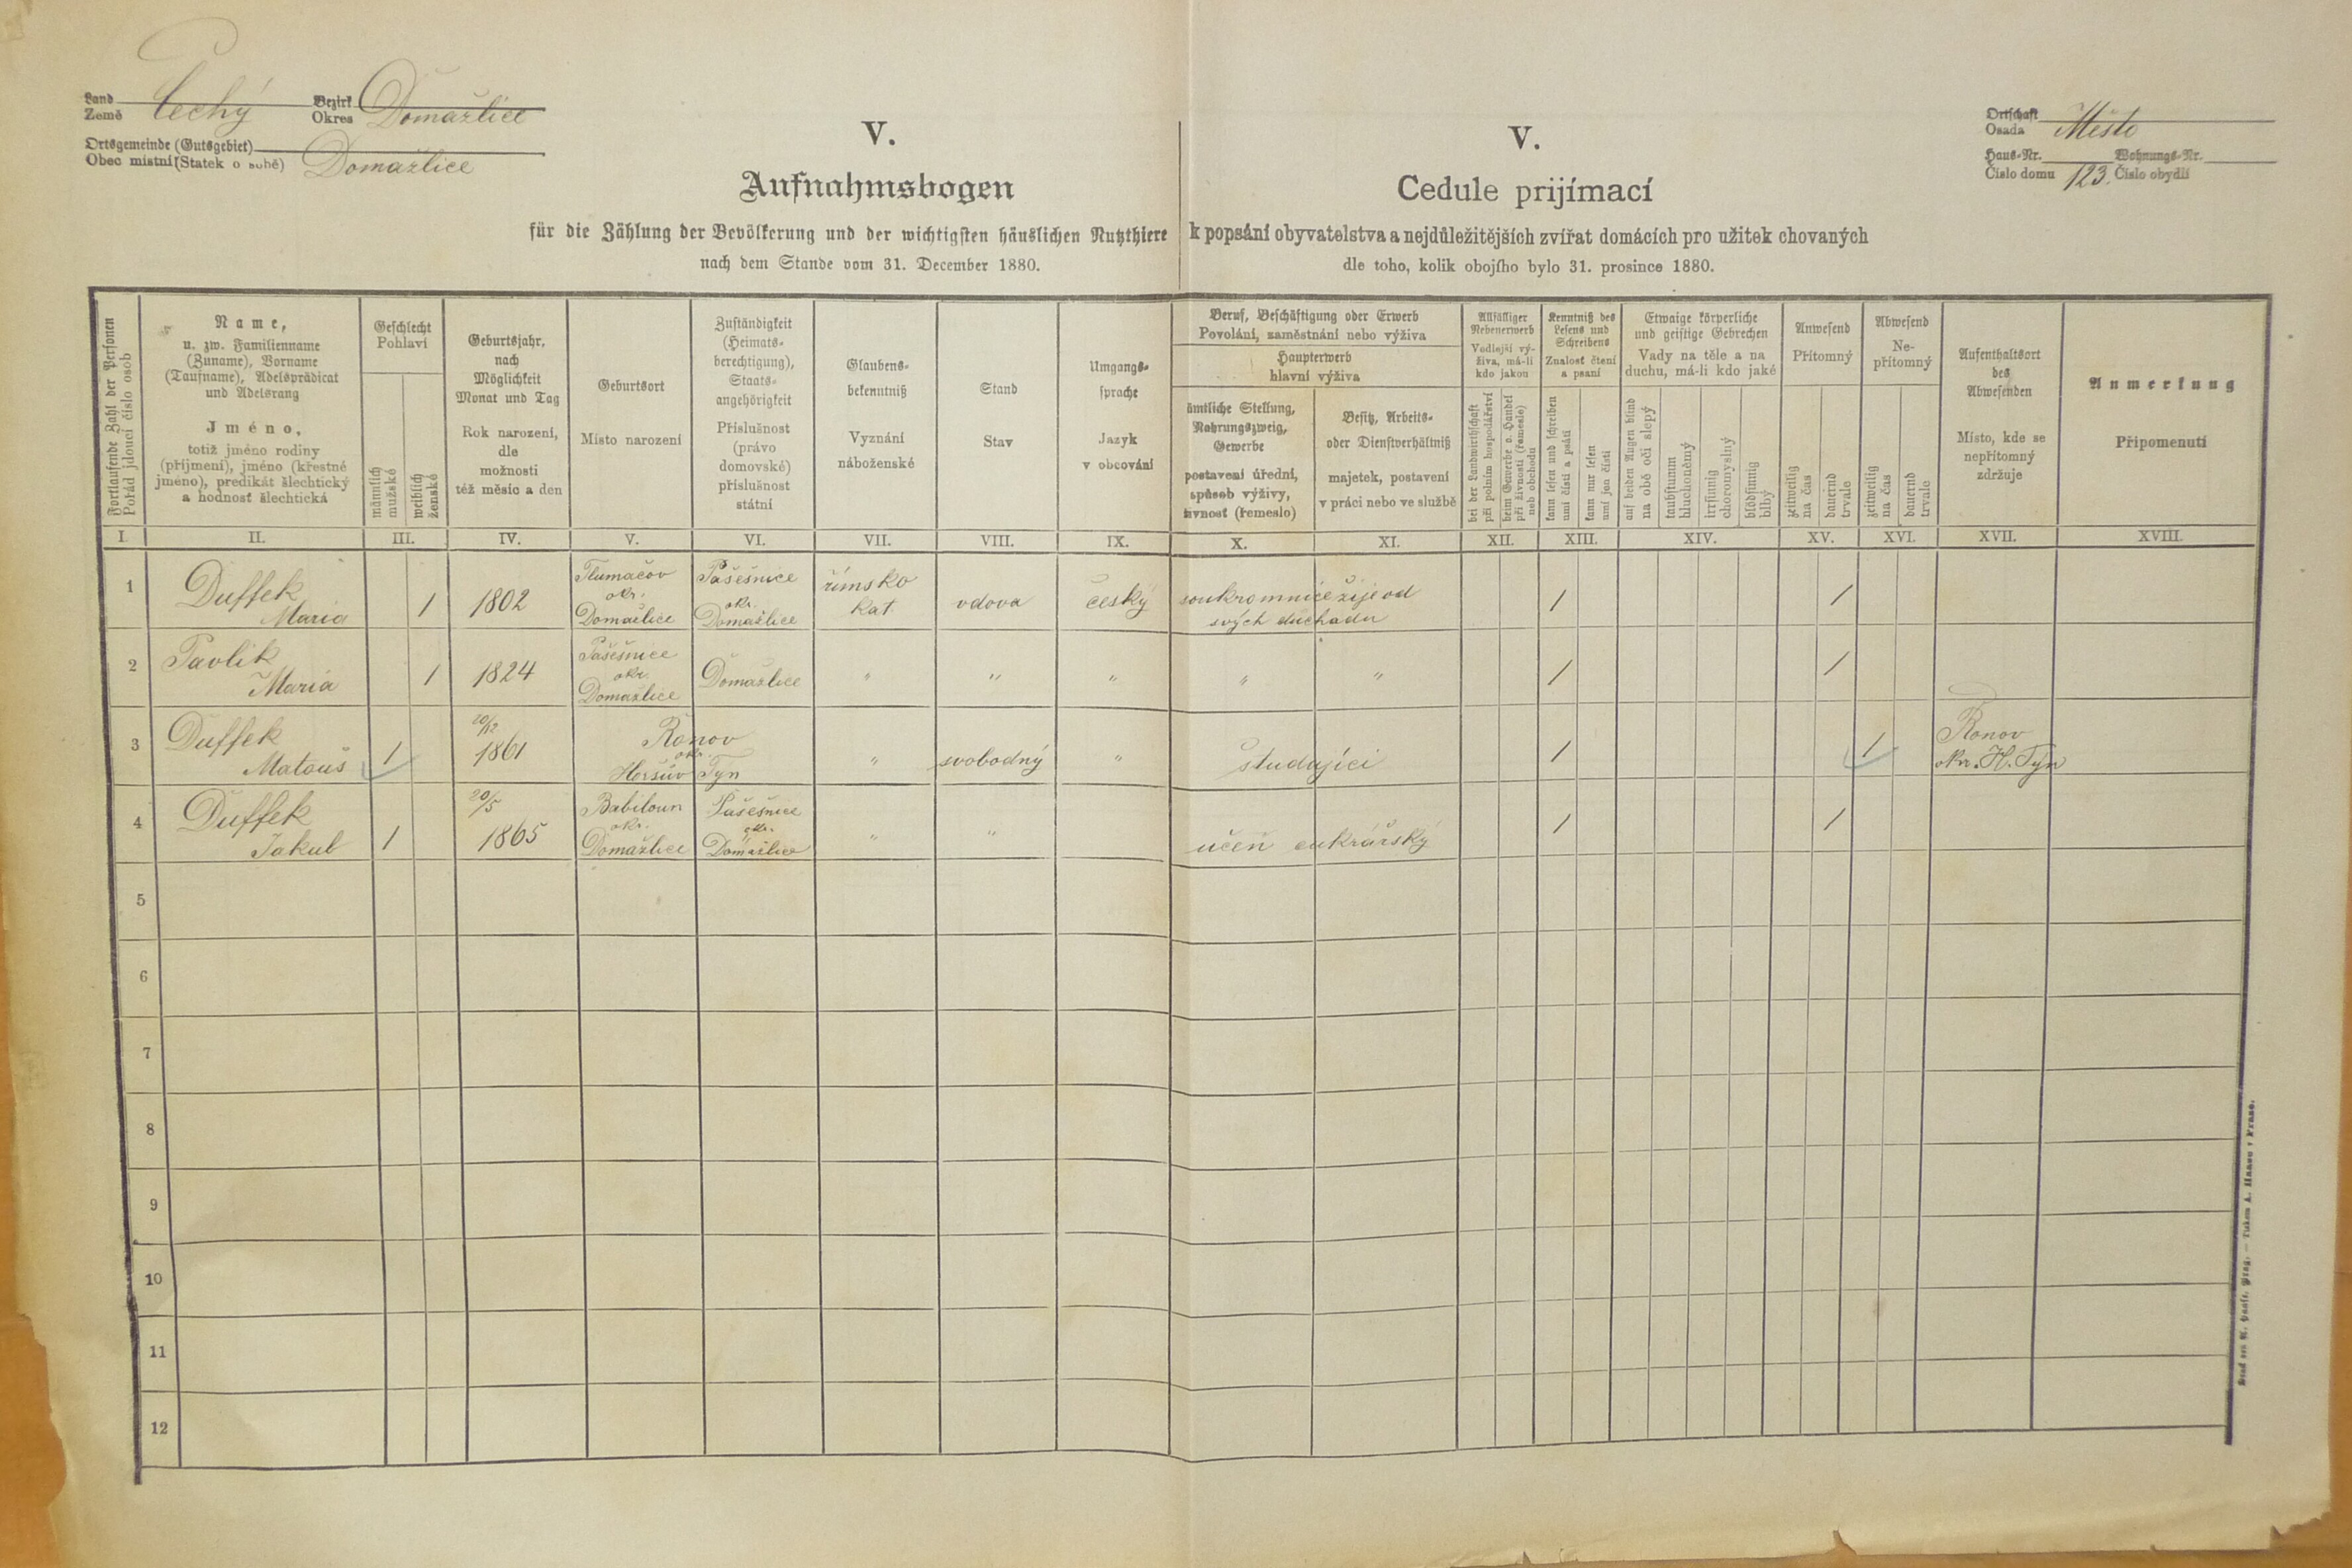 Land Země Čechy Bezirk Okres Domažlice
Ortsgemeinde (Gutsgebiet)
Obec místní (Statek o sobě) Domažlice
Ortschaft
Osada Město
Haus-Nr. Wohnungs-Nr.
Číslo domu 123. Číslo obydlí
V.
Aufnahmsbogen
für die Zählung der Bevölkerung und der wichtigsten häuslichen Nutzthiere
nach dem Stande vom 31. December 1880.
V.
Cedule prijímací
k popsání obyvatelstva a nejdůležitějších zvířat domácích pro užitek chovaných
dle toho, kolik obojího bylo 31. prosince 1880.
Fortlaufende Zahl der Personen
Pořád jdoucí číslo osob
Name,
u. zw. Familienname
(Zuname), Vorname
(Taufname), Adelsprädicat
und Adelsrang
Jméno,
totiž jméno rodiny
(příjmení), jméno (křestné
jméno), predikát šlechtický
a hodnosť šlechtická
Geschlecht
Pohlaví
männlich
mužské
weiblich
ženské
Geburtsjahr,
nach
Möglichkeit
Monat und Tag
Rok narození,
dle
možnosti
též měsíc a den
Geburtsort
Místo narození
Zuständigkeit
(Heimats-
berechtigung),
Staats-
angehörigkeit
Příslušnost
(právo
domovské)
příslušnost
státní
Glaubens-
bekenntniß
Vyznání
náboženské
Stand
Stav
Umgangs-
sprache
Jazyk
v obcování
Beruf, Beschäftigung oder Erwerb
Povolání, zaměstnání nebo výživa
Haupterwerb
hlavní výživa
ämtliche Stellung,
Nahrungszweig,
Gewerbe
postavení úřední,
způsob výživy,
živnosť (řemeslo)
Besitz, Arbeits-
oder Dienstverhältniß
majetek, postavení
v práci nebo ve službě
Allfälliger
Nebenerwerb
Vedlejší vý-
živa, má-li
kdo jakou
bei der Landwirthschaft
při polním hospodářství
beim Gewerbe o. Handel
při živnosti (řemesle)
neb obchodu
Kenntniß des
Lesens und
Schreibens
Znalosť čtení
a psaní
kann lesen und schreiben
umí čísti a psáti
kann nur lesen
umí jen čísti
Etwaige körperliche
und geistige Gebrechen
Vady na těle a na
duchu, má-li kdo jaké
auf beiden Augen blind
na obě oči slepý
taubstumm
hluchoněmý
irrsinnig
choromyslný
blödsinnig
blbý
Anwesend
Přítomný
zeitweilig
na čas
dauernd
trvale
Abwesend
Ne-
přítomný
zeitweilig
na čas
dauernd
trvale
Aufenthaltsort
des
Abwesenden
Místo, kde se
nepřítomný
zdržuje
Anmerkung
Připomenutí
I. II. III. IV. V. VI. VII. VIII. IX. X. XI. XII. XIII. XIV. XV. XVI. XVII. XVIII.
1 Duffek Maria 1 1802 Tlumačov okr. Domažlice Pašešnice okr. Domažlice římsko kat. vdova český soukromnice žije od svých důchodu 1 1
2 Pavlik Maria 1 1824 Pašešnice okr. Domažlice Domažlice " " " " " 1 1
3 Duffek Matouš 1 20/12 1861 Ronov okr. Horšův Týn " svobodný " študující 1 1 Ronov okr. H. Týn
4 Duffek Jakub 1 20/5 1865 Babiloun okr. Domažlice Pašešnice okr. Domažlice " " učeň cukrářský 1 1
5
6
7
8
9
10
11
12